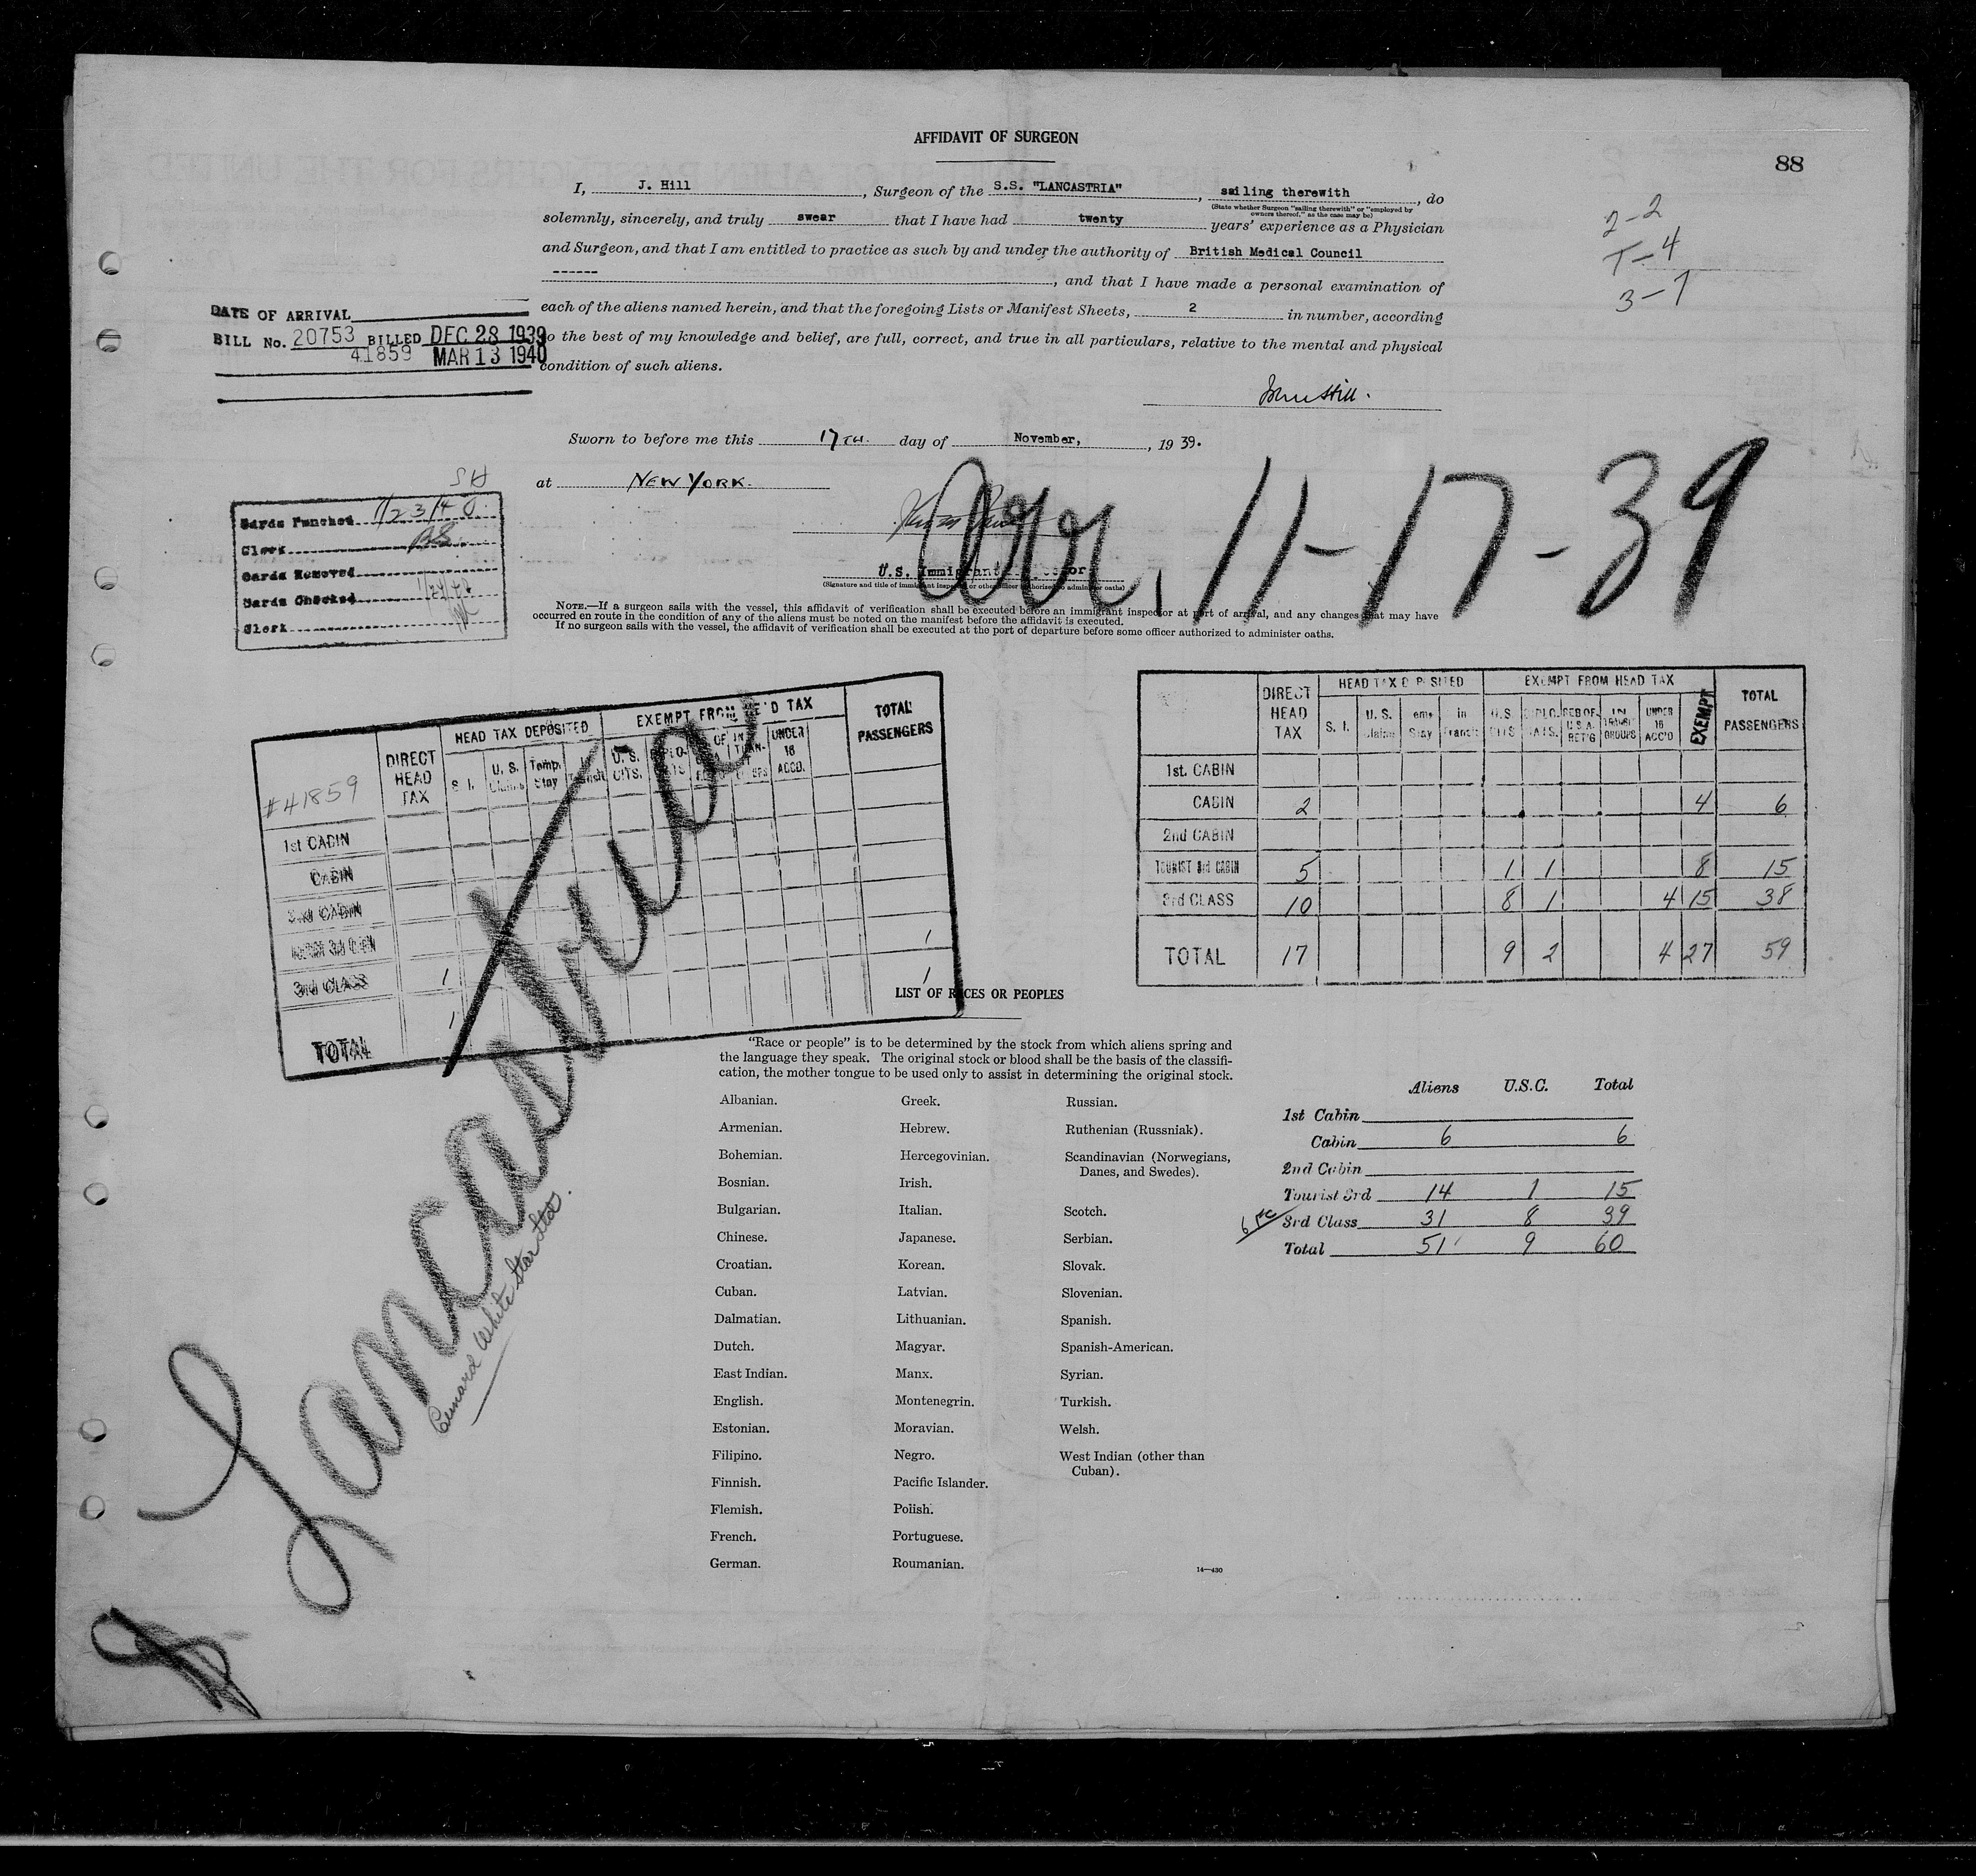 AFFIDAVIT OF SURGEON
88
I, J. Hill, Surgeon of the S.S. "LANCASTRIA", sailing therewith, do
(State whether Surgeon "sailing therewith" or "employed by
owners thereof," as the case may be)
solemnly, sincerely, and truly swear that I have had twenty years' experience as a Physician
and Surgeon, and that I am entitled to practice as such by and under the authority of British Medical Council
------, and that I have made a personal examination of
each of the aliens named herein, and that the foregoing Lists or Manifest Sheets, 2 in number, according
to the best of my knowledge and belief, are full, correct, and true in all particulars, relative to the mental and physical
condition of such aliens.
2-2
T-4
3-7
DATE OF ARRIVAL
BILL No. 20753 BILLED DEC 28 1939
41859 MAR 13 1940
John Hill.
Sworn to before me this 17TH. day of November, 1939.
at NEW YORK.
Arr. 11-17-39
U.S. Immigrant
(Signature and title of immigrant inspector or other officer authorized to administer oaths)
SH
Cards Punched 1/23/40
Clerk BS
Cards Removed
Cards Checked
Clerk
NOTE.—If a surgeon sails with the vessel, this affidavit of verification shall be executed before an immigrant inspector at port of arrival, and any changes that may have
occurred en route in the condition of any of the aliens must be noted on the manifest before the affidavit is executed.
If no surgeon sails with the vessel, the affidavit of verification shall be executed at the port of departure before some officer authorized to administer oaths.
#41859
DIRECT HEAD TAX
HEAD TAX DEPOSITED
EXEMPT FROM HEAD TAX
TOTAL PASSENGERS
S. I. U. S. Claims Temp. Stay In Transit U. S. CITS. DIPLOMATS UNDER 16 ACCD.
1st CABIN
CABIN
2nd CABIN
TOURIST 3rd CABIN 1
3rd CLASS 1 1
TOTAL 1
DIRECT HEAD TAX
HEAD TAX DEPOSITED
EXEMPT FROM HEAD TAX
TOTAL PASSENGERS
S. I. U. S. Claims Temp. Stay in Transit U.S. CITS. DIPLOMATS. RES OF U.S.A. RET'G IN TRANSIT GROUPS UNDER 16 ACC'D EXEMPT
1st. CABIN
CABIN 2 4 6
2nd CABIN
TOURIST 3rd CABIN 5 1 1 8 15
3rd CLASS 10 8 1 4 15 38
TOTAL 17 9 2 4 27 59
Lancastria
Cunard White Star Ltd.
LIST OF RACES OR PEOPLES
"Race or people" is to be determined by the stock from which aliens spring and
the language they speak. The original stock or blood shall be the basis of the classifi-
cation, the mother tongue to be used only to assist in determining the original stock.
Albanian.
Armenian.
Bohemian.
Bosnian.
Bulgarian.
Chinese.
Croatian.
Cuban.
Dalmatian.
Dutch.
East Indian.
English.
Estonian.
Filipino.
Finnish.
Flemish.
French.
German.
Greek.
Hebrew.
Hercegovinian.
Irish.
Italian.
Japanese.
Korean.
Latvian.
Lithuanian.
Magyar.
Manx.
Montenegrin.
Moravian.
Negro.
Pacific Islander.
Polish.
Portuguese.
Roumanian.
Russian.
Ruthenian (Russniak).
Scandinavian (Norwegians,
Danes, and Swedes).
Scotch.
Serbian.
Slovak.
Slovenian.
Spanish.
Spanish-American.
Syrian.
Turkish.
Welsh.
West Indian (other than
Cuban).
14—430
Aliens U.S.C. Total
1st Cabin
Cabin 6 6
2nd Cabin
Tourist 3rd 14 1 15
3rd Class 31 8 39
Total 51 9 60